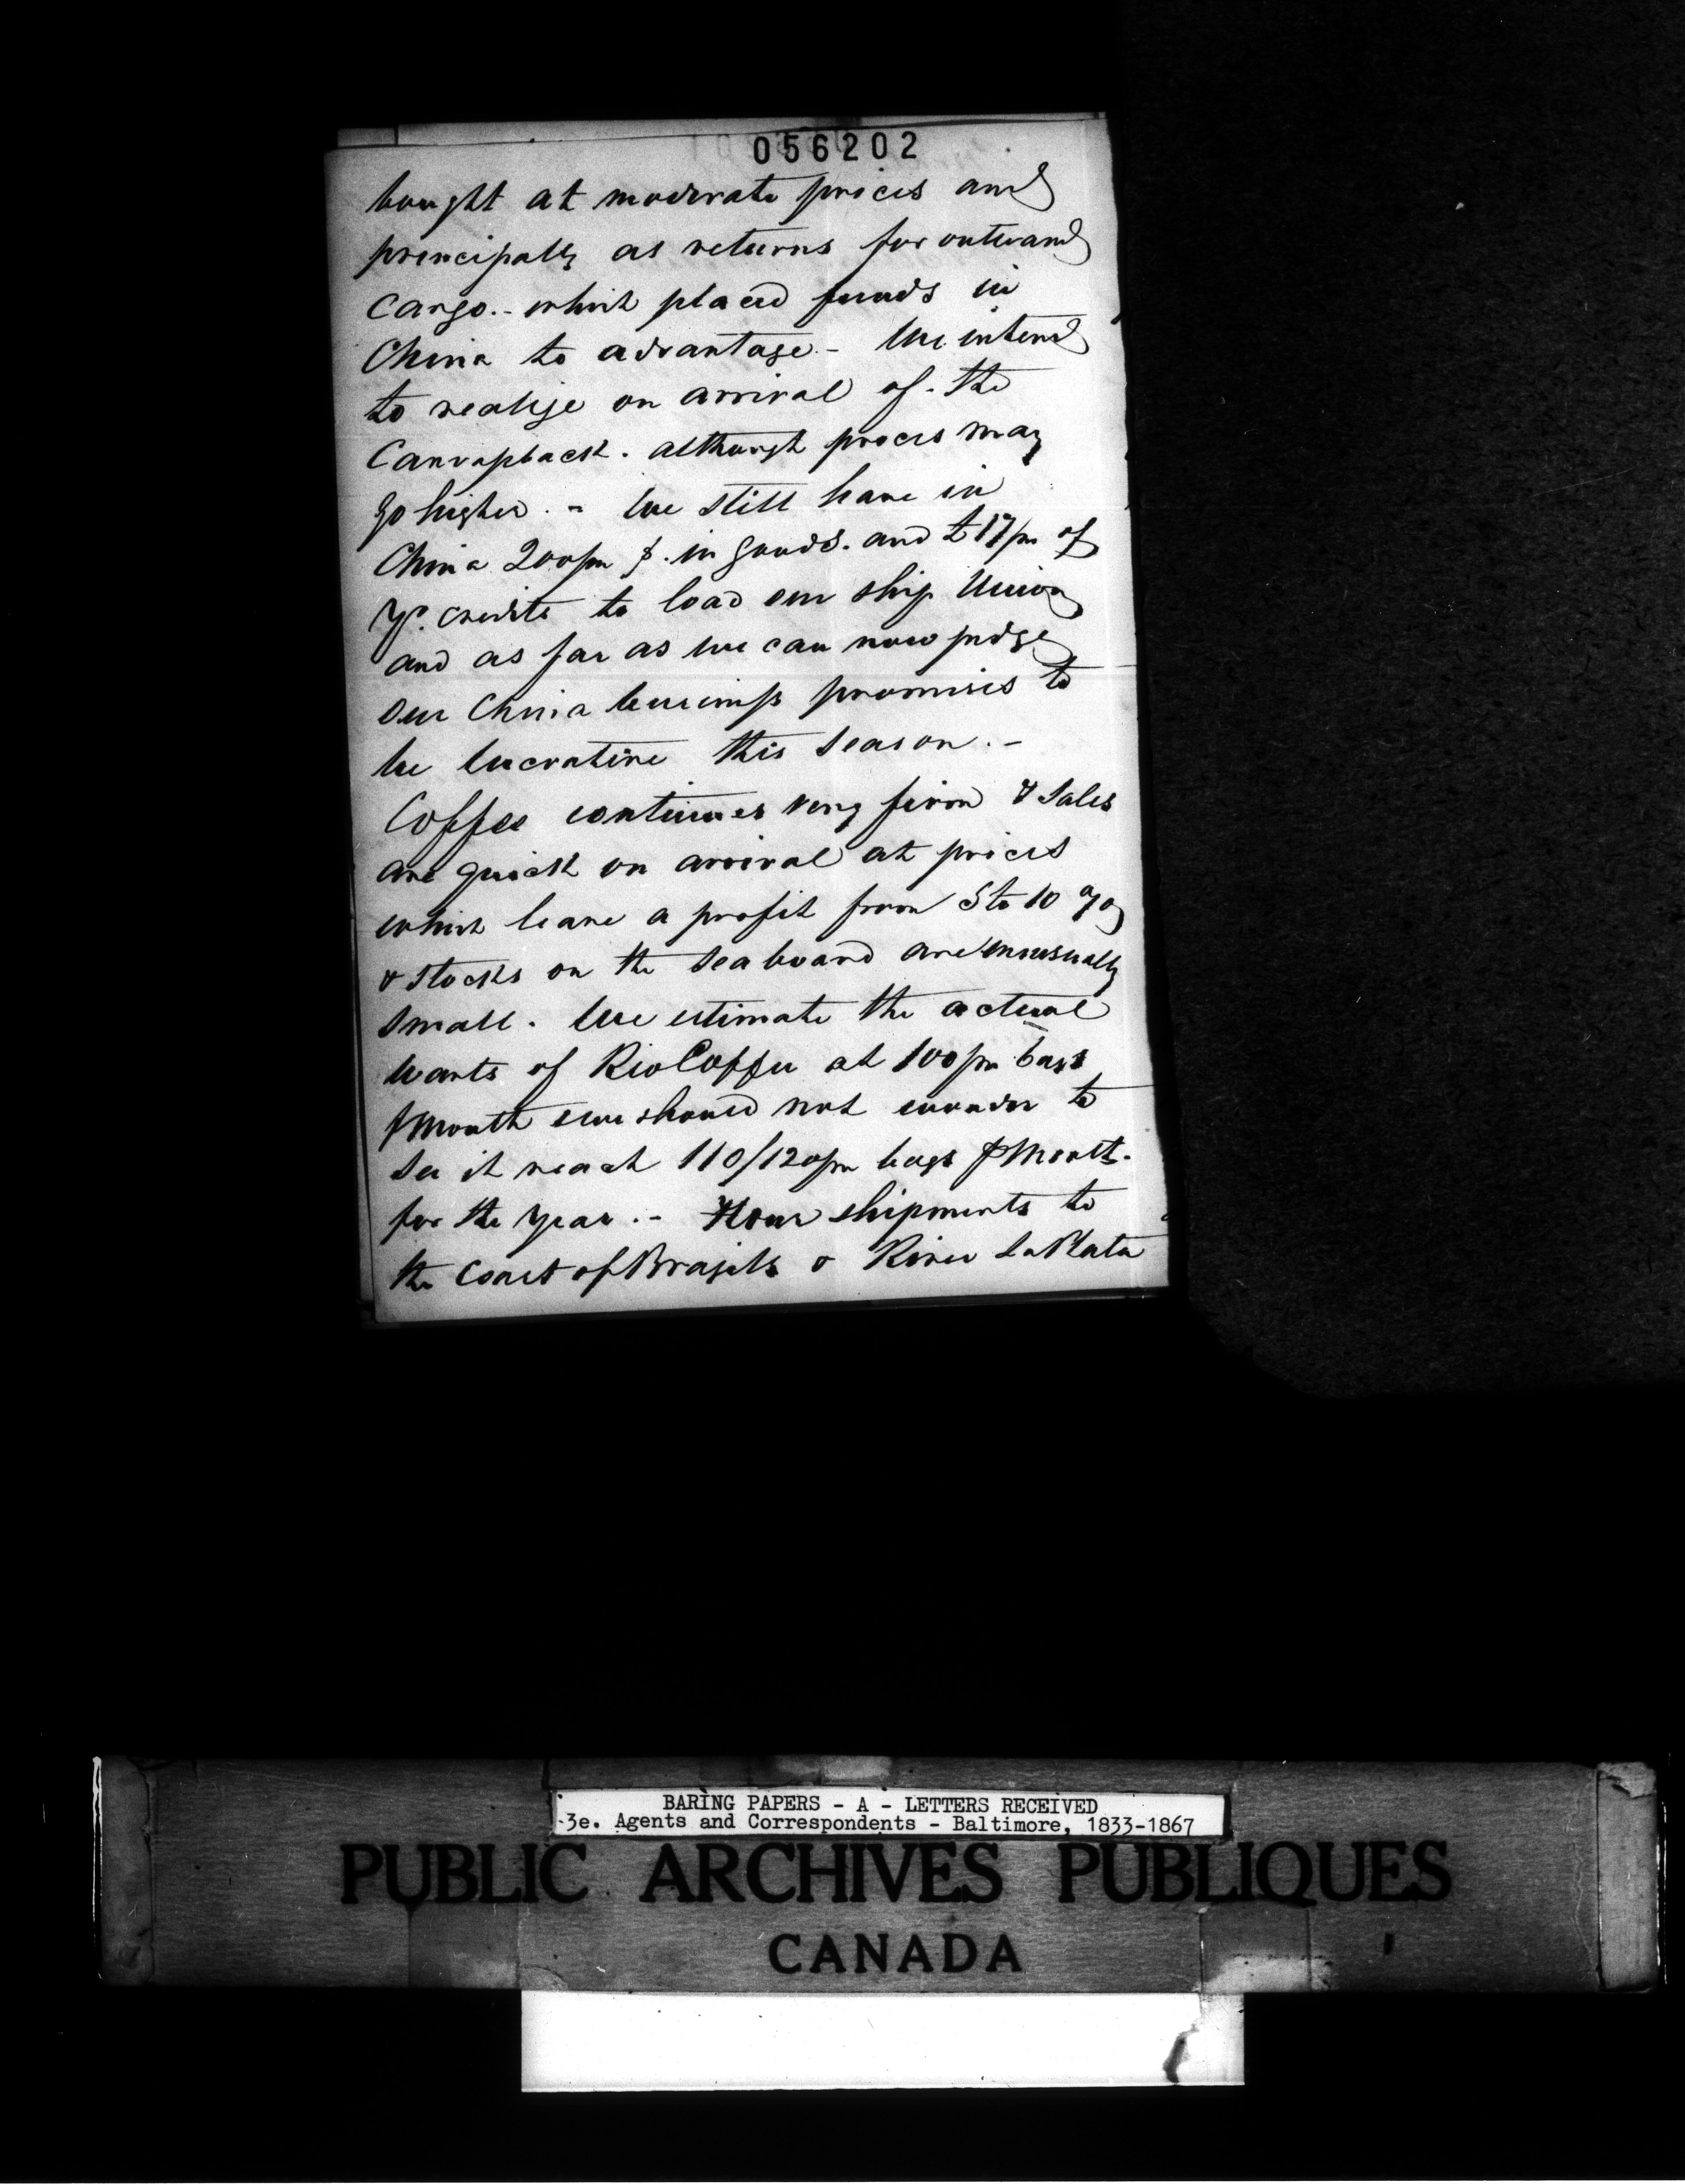 056202
bought at moderate prices and
principally as returns for outward
Cargo.- which placed funds in
China to advantage - We intend
to realize on arrival of the
Canvasback. although prices may
go higher. - We still have in
China 200/m $. in goods. and £17/m of
Yr. credits to load our ship Union
and as far as we can now judge
our China business promises to
be lucrative this season. -
Coffee continues very firm & sales
are quick on arrival at prices
which leave a profit from 5 to 10 %
& stocks on the seaboard are unusually
small. We estimate the actual
wants of Rio Coffee at 100/m bags
⅌ Month & we should not wonder to
see it reach 110/120/m bags ⅌ Month.
for the year. - Flour shipments to
the Coast of Brazils & River La Plata
BARING PAPERS - A - LETTERS RECEIVED
3e. Agents and Correspondents - Baltimore, 1833-1867
PUBLIC ARCHIVES PUBLIQUES
CANADA